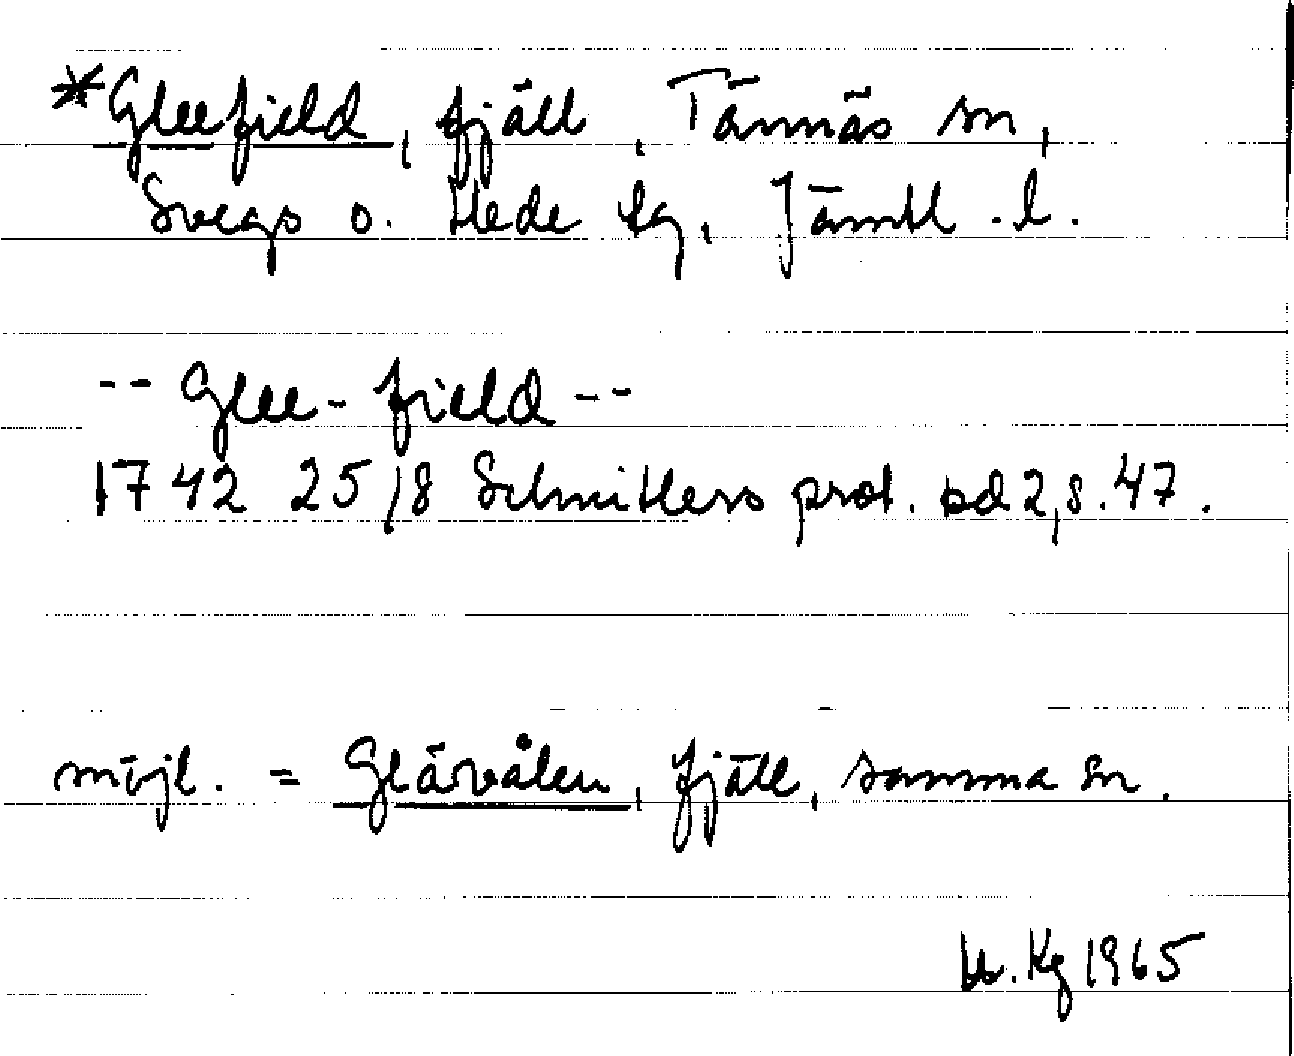 *Gleefield, fjäll, Tännäs sn,
Svegs o. Hede tg, Jämtl. l.
-- Glee-field --
1742 25/8 Schnitlers prot. bd 2, s. 47.
möjl. = Glävålen, fjäll, samma sn.
Kg 1965